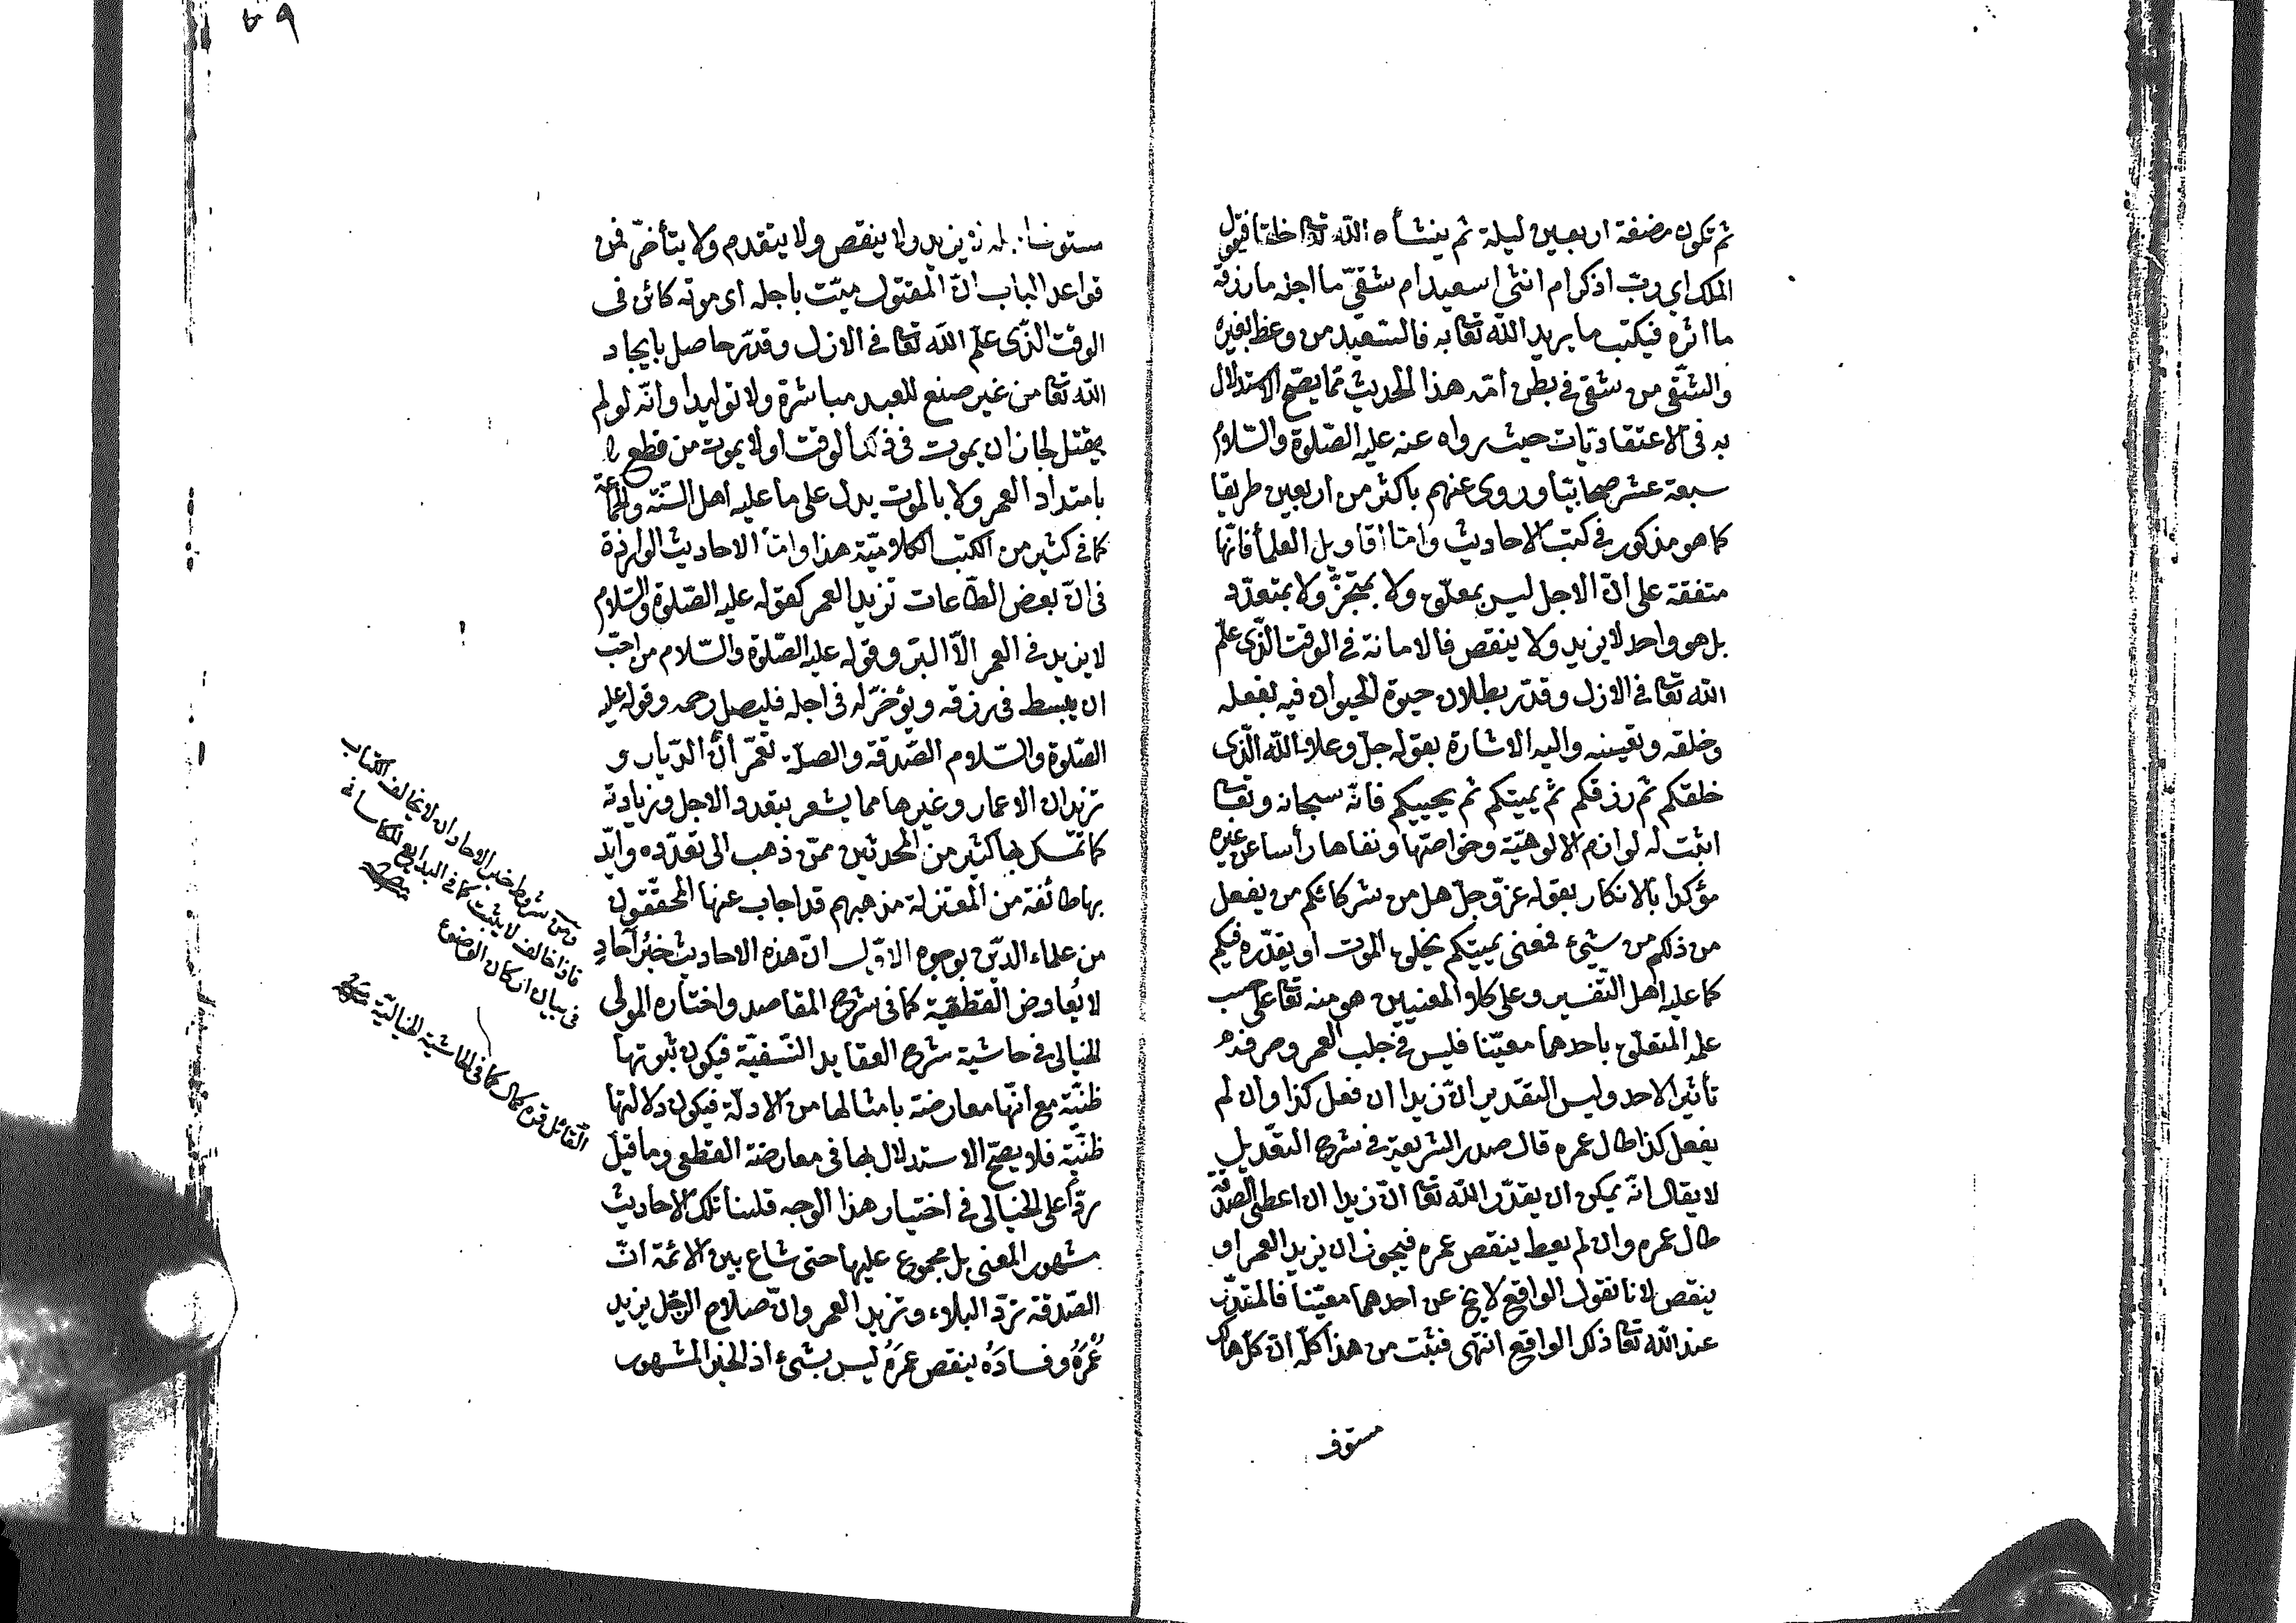 ثم تكون مضغة اربعين ليلة ثم ينشأه الله تعا خلقا فيقول
الملك اي ربّ اذكر ام انثى اسعيد ام شقيّ ما اجله ما رزقه
ما اثره فيكتب ما يريد الله تعا به فالسّعيد من وعظ بغيره
والشّقى من شقى في بطن امّه هذا الحديث ممّا يصحّ الاستدلال
به فى الاعتقاديّات حيث رواه عنه عليه الصّلوة والسّلام
سبعة عشر صحابيّا وروى عنهم باكثر من اربعين طريقا
كما هو مذكور في كتب الاحاديث وامّا اقاويل العلمأ فانّها
متفقة على انّ الاجل ليس بمعلّق ولا بمتجزّ ولا بمتعدّد
بل هو واحد لا يزيد ولا ينقص فالاماتة في الوقت الذّى علم
الله تعا في الازل وقدّر بطلان حيوة الحيوان فيه بفعله
وخلقه وتعيينه واليه الاشارة بقوله جلّ وعلا الله الّذى
خلقكم ثم رزقكم ثم يميتكم ثم يحييكم فانّه سبحانه وتعا
اثبت له لوازم الالوهيّة وخواصّها ونفاها رأسا عن غيره
مؤكدا بالانكار بقوله عزّ وجلّ هل من شركائكم من يفعل
من ذلكم من شيء فمعنى يميتكم يخلق الموت او يقدّره فيكم
كما عليه اهل التّفسير وعلى كلا المعنيين هو منه تعا على حسب
علمه المتعلّق باحدهما معيّنا فليس في جلب العمر وصرفه
تأثير لاحد وليس التقدير انّ زيدا ان فعل كذا وان لم
يفعل كذا طال عمره قال صدر الشريعة في شرح التعّديل
لا يقال انّه يمكن ان يقدّر الله تعا انّ زيدا ان اعطى الصدقة
طال عمره وان لم يعط ينقص عمره فيجوز ان يزيد العمر او
ينقص لانا نقول الواقع لا يخ عن احدهما معيّنا فالمقدّر
عند الله تعا ذلك الواقع انتهى فثبت من هذا كلّه انّ كلّ هالك
مستوف
٥٩
مستوف اجله لا يزيد ولا ينقص ولا يتقدم ولا يتأخّر فمن
قواعد الباب انّ المقتول ميّت باجله اى موته كائن فى
الوقت الذّى علم الله تعا في الازل وقدّر حاصل بايجاد
الله تعا من غير صنع للعبد مباشرة ولا توليدا وانّه لو لم
يقتل لجاز ان يموت في ذلك الوقت اولا يموت من قطع لا
بامتداد العمر ولا بالموت يدل على ما عليه اهل السّنّة والجماعة
كما في كثير من الكتب الكلاميّة هذا وامّا الاحاديث الواردة
فى انّ بعض الطّاعات تزيد العمر كقوله عليه الصّلوة والسّلام
لا يزيد في العمر الاّ البرّ وقوله عليه الصّلوة والسّلام من احبّ
ان يبسط فى رزقه ويؤخّر له فى اجله فليصل رحمه وقوله عليه
الصّلوة والسّلام الصّدقة والصلة تعمّران الدّيار و
تزيدان الاعمار وغيرها مما يشعر بتعدد الاجل وزيادته
كما تمّسك بها كثير من المحدثين ممّن ذهب الى تعدّده وايّد
بها طائفة من المعتزلة مذهبهم قد اجاب عنها المحقّقون
من علماء الدّين بوجوه الاوّل انّ هذه الاحاديث خبر آحادٍ
لا يُعارض القطعيّة كما فى شرح المقاصد واختاره المولى
الخيالى في حاشية شرح العقايد النّسفيّة فيكون ثبوتها
ظنّيّة مع انّها معارضة بامثالها من الادلّة فيكون دلالتها
ظنّيّة فلا يصحّ الاستدلال بها فى معارضة القطعى وما قيل
ردّا على الخيالى في اختيار هذا الوجه قلنا تلك الاحاديث
مشهور المعنى بل مجموع عليها حتى شاع بين الائمّة انّ
الصّدقة تردّ البلاء وتزيد العمر وانّ صلاح الرّجل يزيد
عُمْرَهُ وفسادَهُ ينقص عمرَهُ ليس بشيء اذ الخبر المشهور
ومن شروط خبر الاحاد ان لا يخالف الكتاب
فاذا خالف لا يثبت كما في البدايع للكاسانى
فى بيان اركان الوضوء
القائل قره كمال كما في الحاشية الخياليّة